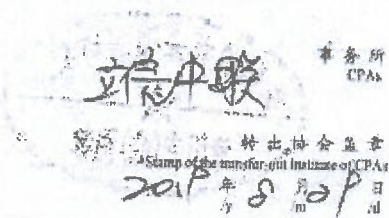 立信中联
事务所
CPAs
转出协会盖章
Stamp of the transfer-out Institute of CPAs
年 8 月 日
/y /m /d